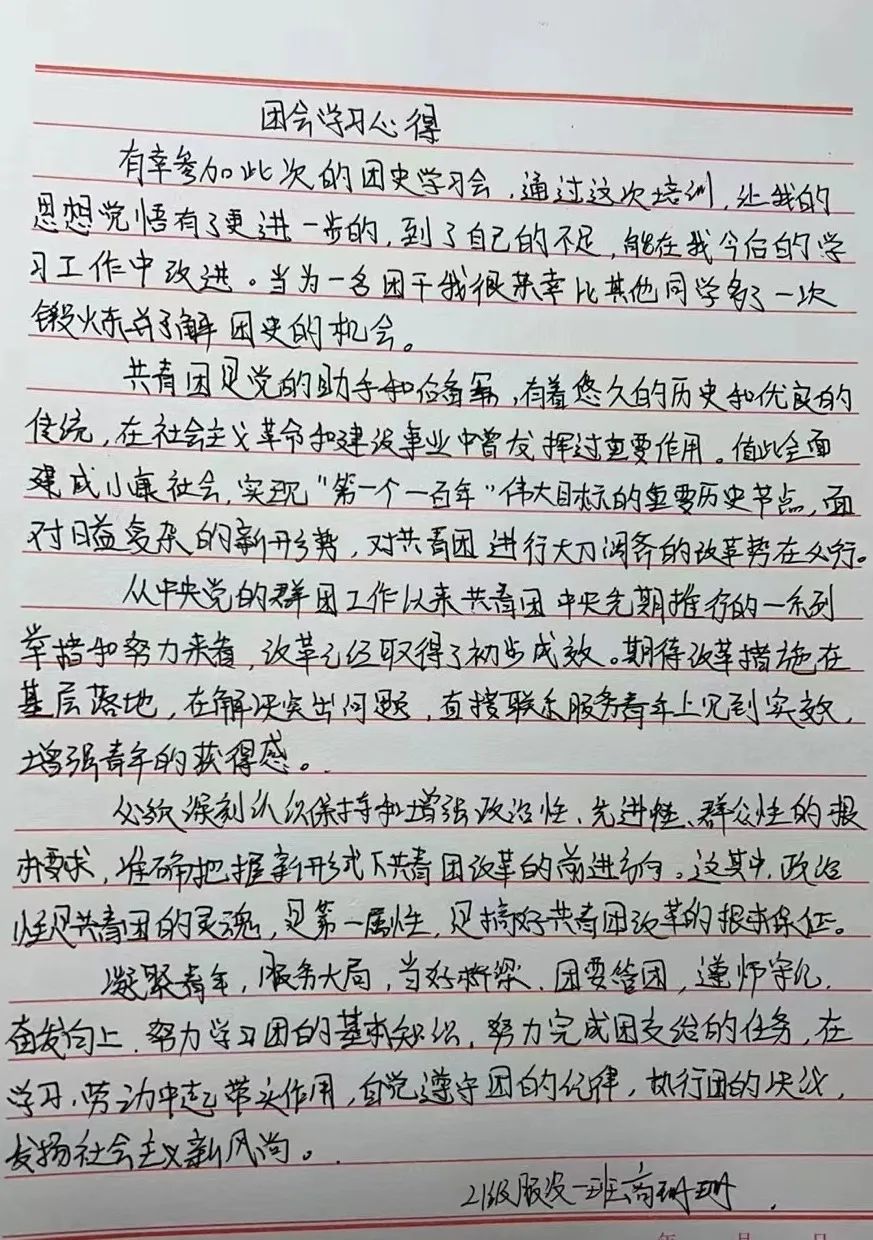 团会学习心得
有幸参加此次的团史学习会，通过这次培训，让我的
思想觉悟有了更进一步的，到了自己的不足，能在我今后的学
习工作中改进。当为一名团干我很荣幸比其他同学多了一次
锻炼与了解团史的机会。
共青团是党的助手和后备军，有着悠久的历史和优良的
传统，在社会主义革命和建设事业中曾发挥过重要作用。值此全面
建成小康社会，实现"第一个一百年"伟大目标的重要历史节点，面
对日益复杂的新形势，对共青团进行大刀阔斧的改革势在必行。
从中央党的群团工作以来共青团中央先期推行的一系列
举措和努力来看，改革已经取得了初步成效。期待改革措施在
基层落地，在解决突出问题，直接联系服务青年上见到实效，
增强青年的获得感。
必须深刻认识保持和增强政治性、先进性、群众性的根
本要求，准确把握新形式下共青团改革的前进方向。这其中，政治
性是共青团的灵魂，是第一属性，是搞好共青团改革的根本保证。
凝聚青年，服务大局，当好桥梁、团要管团，遵师守纪，
奋发向上，努力学习团的基本知识，努力完成团支给的任务，在
学习、劳动中起带头作用，自觉遵守团的纪律，执行团的决议，
发扬社会主义新风尚。
21级服设一班商珊珊
年 月 日